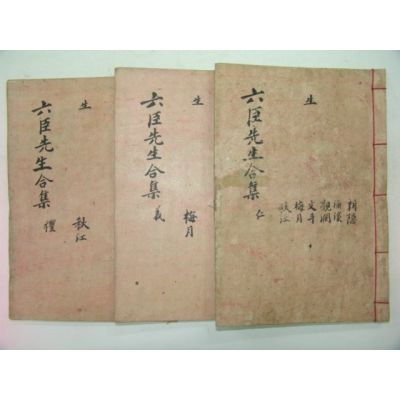 生
耕隱
漁溪
觀瀾
文斗
梅月
秋江
六臣先生合集 仁
生
梅月
六臣先生合集 義
生
秋江
六臣先生合集 禮